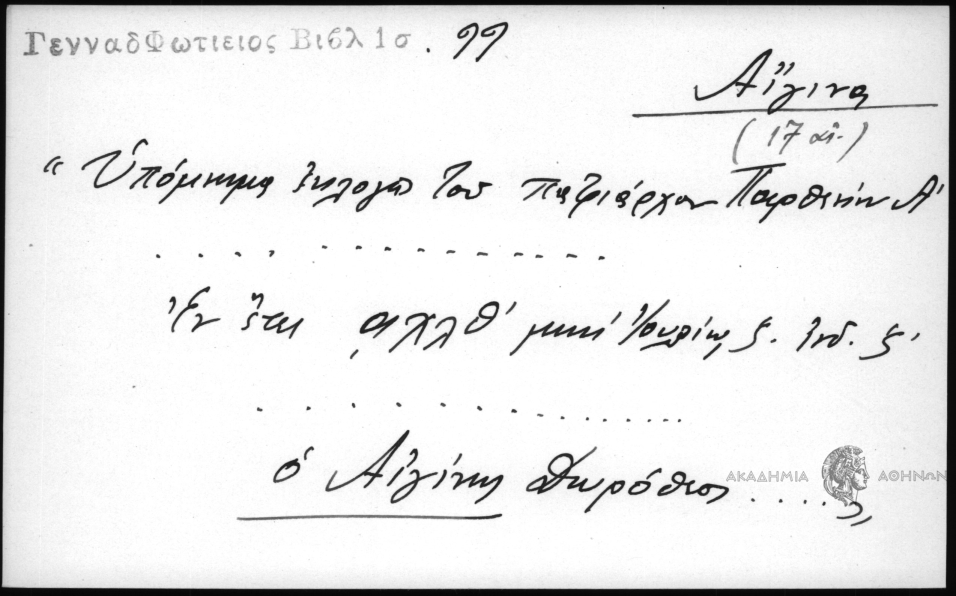 ΓενναδΦωτιειος Βιβλ 1σ. 99
Αἴγινα
(17 αἰ.)
“Ὑπόμνημα ἐκλογῆς τοῦ πατριάρχου Παρθενίου Α'
. . . . . . . . . . . . . . . .
Ἐν ἔτει ͵αχλθ' μηνὶ Ἰουλίῳ ἰνδ. ζ'
. . . . . . . . . . . . . . . .
ὁ Αἰγίνης Δωρόθεος . . . . „
ΑΚΑΔΗΜΙΑ ΑΘΗΝΩΝ